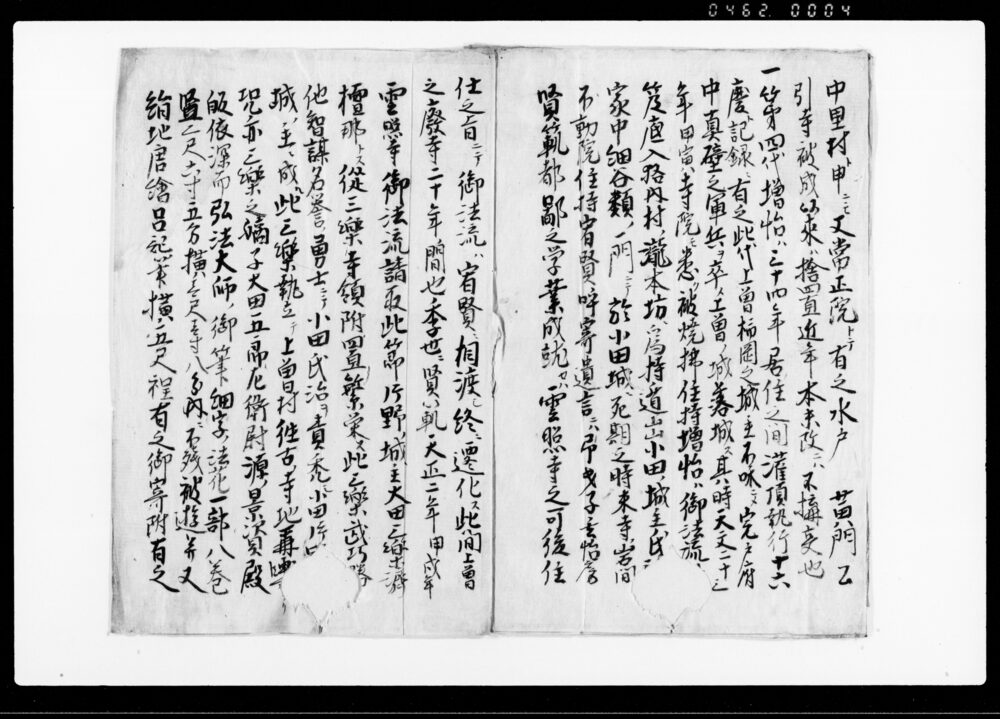 0462 0004
中里村ト申ニモ又常正院トテ有之水戸 苗門乙
引寺被成以来ハ捨置近年本末改ニハ不搆更也
一第四代増怡ハ三十四年居住之間灌頂執行十六
度ト記録ニ有之此代上曽柿岡之城主不和ニ〆完戸府
中真壁之軍兵ヲ卒〆上曽ノ城落城ス其時天文二十三
年甲寅寺院モ悉ク被焼拂住持増怡ハ御法流
笈底入猪内村ノ瀧本坊ヘ為持道山小田ノ城主氏
家中細谷類ノ一門ニテ於小田城ニ死期之時東寺岩間
不動院住持宥賢ヲ呼寄遺言ニハ弟子
賢範都鄙之学業成就セハ雲照寺之可後住
仕之旨ニテ御法流ハ宥賢ヘ相渡シ終ニ遷化ス此間上曽
之廢寺二十年間也季世ニ賢範天正二年甲戌年
雲照寺御法流請取此節片野城主大田三樂斎
檀那トス従三樂寺領附置繁栄ス此三樂武巧勝
他智謀名誉ノ勇士ニテ小田氏治ヲ責乔シ小田
城ノ主ト成ル此三樂執立テ上曽村往古寺地再興
況亦三樂之嫡子大田五郎左衛尉源ノ景資殿
皈依深而弘法大師ノ御筆細字ノ法花一部八巻
竪ニ尺六寸五分横壱尺壱寸八分内ニ不残被遊并又
絹地唐繪呂記筆横五尺程有之御寄附有之